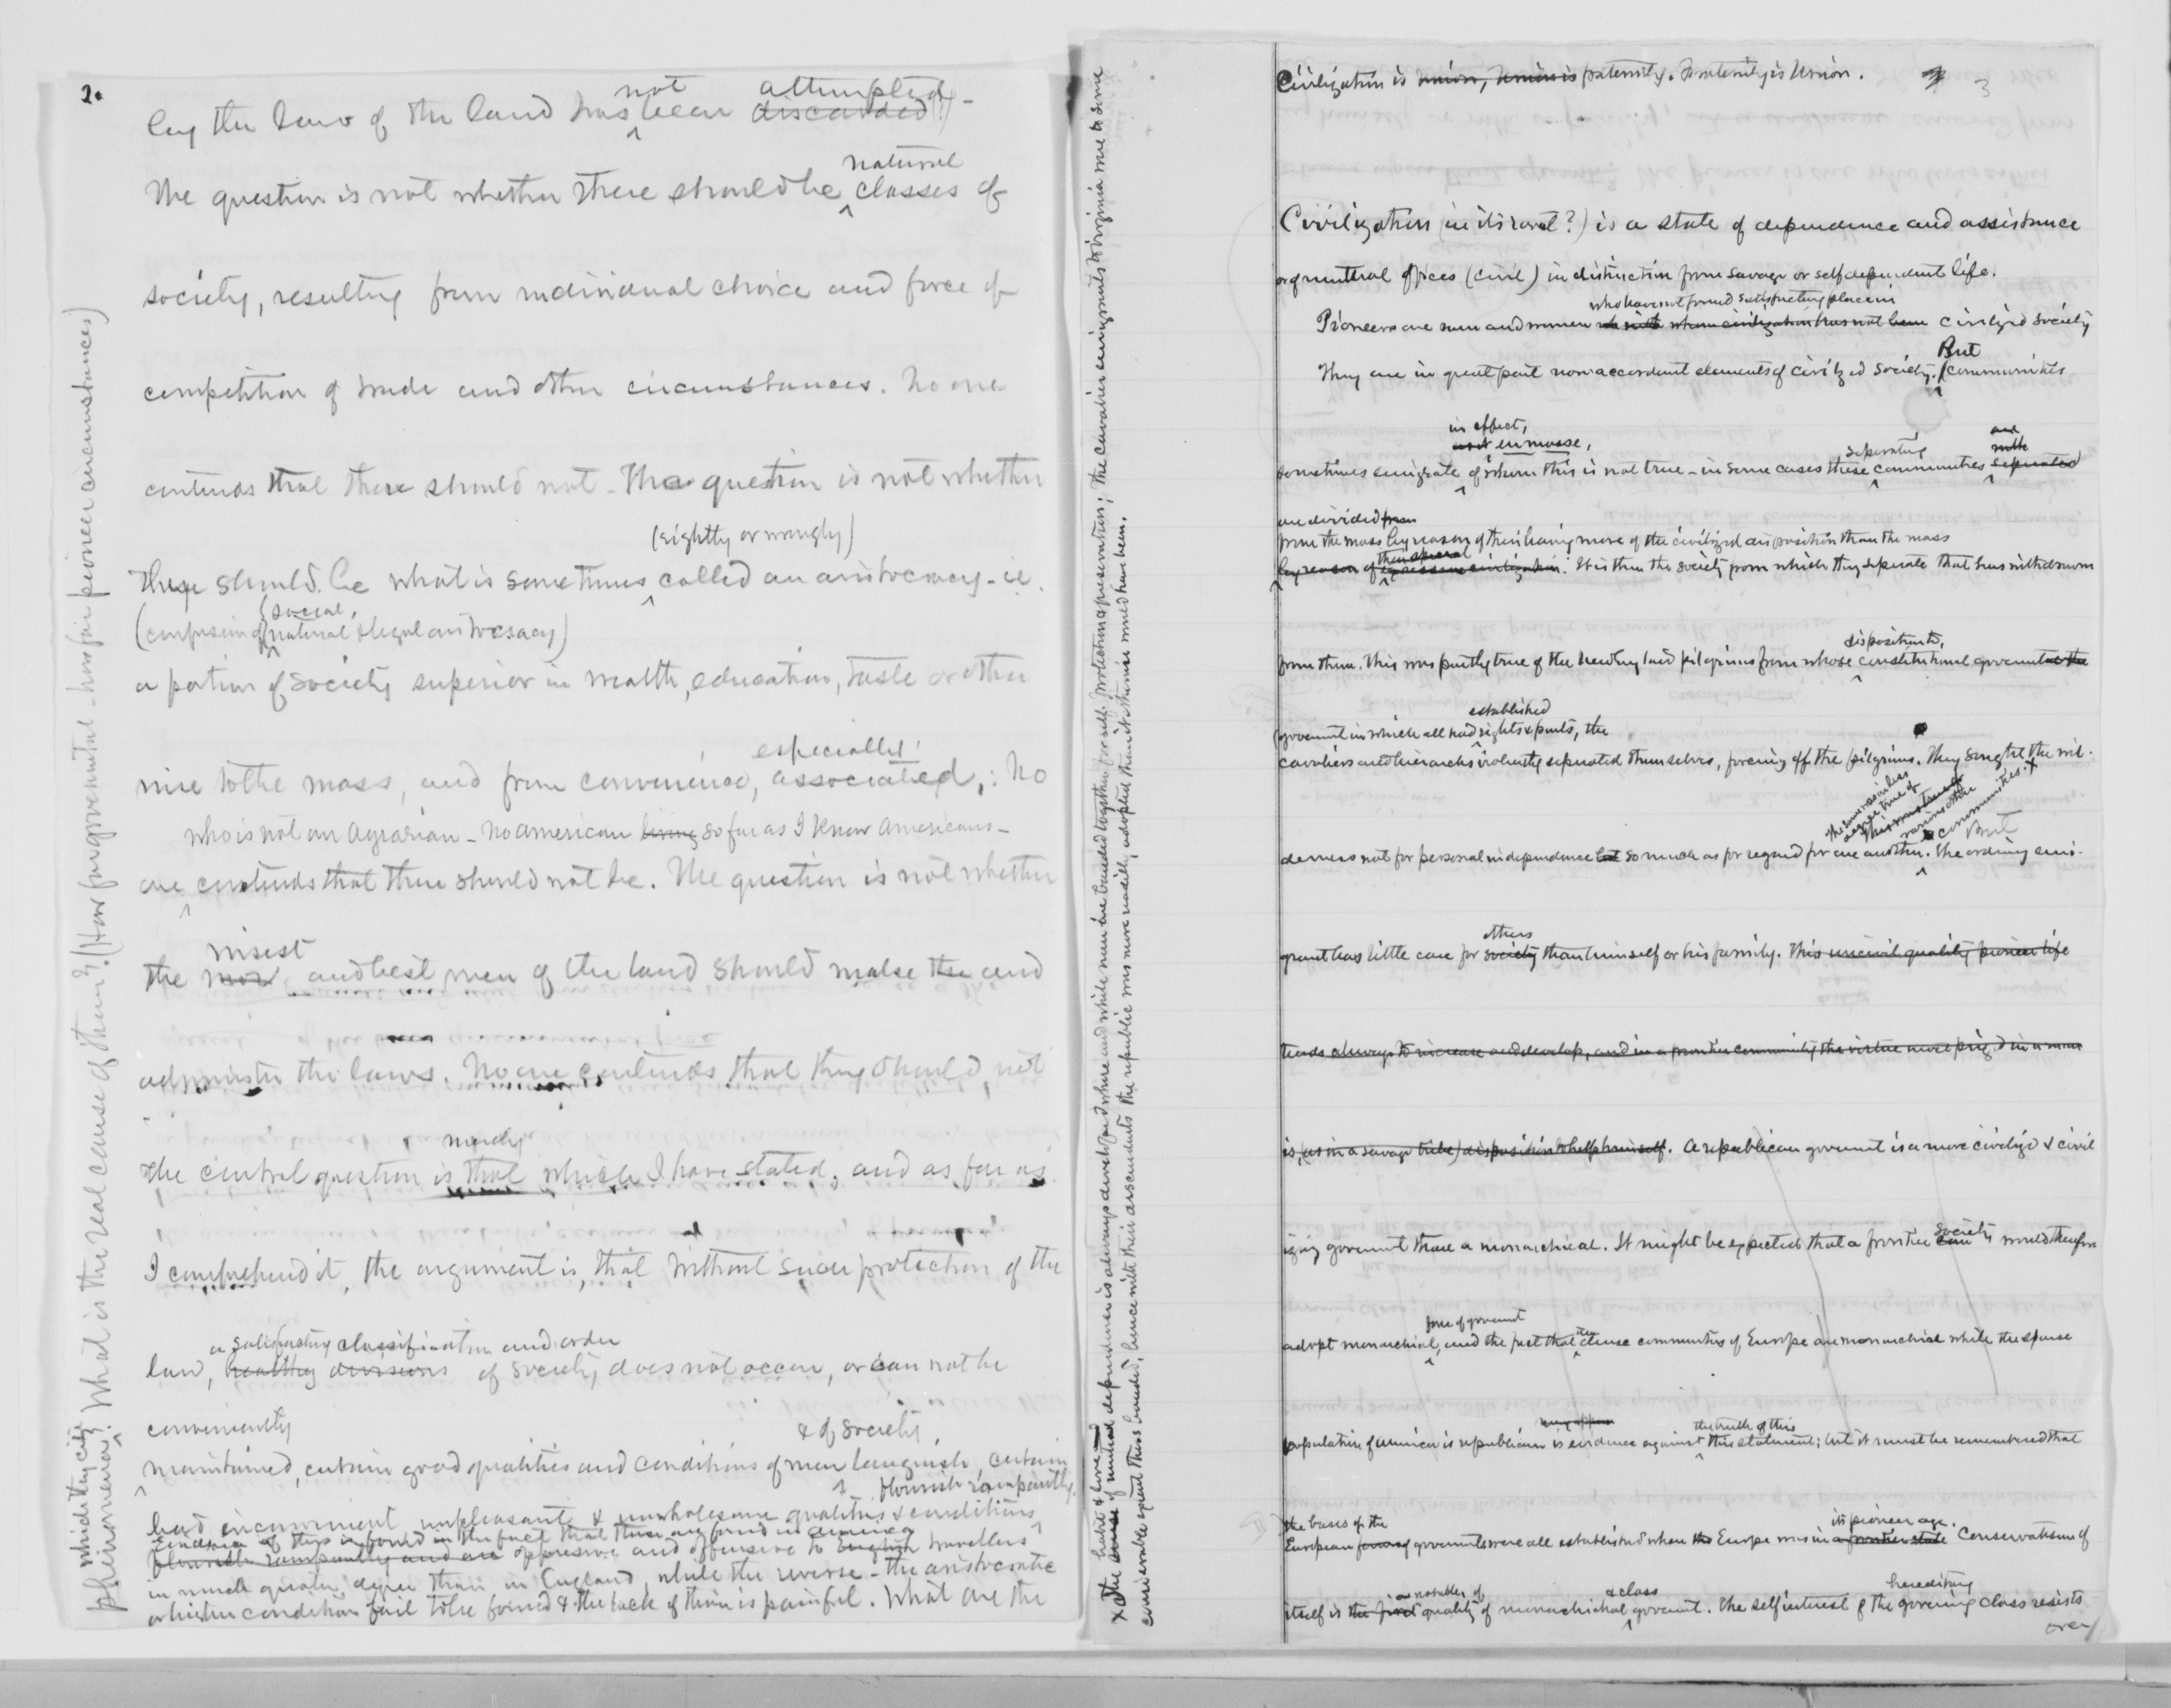 2.
not attempted
by the laws of the land has been discarded?) -
natural
The question is not whether there should be classes of
society, resulting from individual choice and force of
competition of trade and other circumstances. No one
contends that there should not - The question is not whether
(rightly or wrongly)
there should be what is sometimes called an aristocracy - ie.
social,
(confusion of natural & legal aristocracy)
a portion of society superior in wealth, education, taste or other
especially
wise to the mass, and from convenience, associated,: No
who is not an Agrarian - no American living so far as I know Americans -
one contends that there should not be. The question is not whether
wisest
the most and best men of the land should make the and
administer the laws. No one contends that they should not
merely
The central question is that which I have stated, and as far as
I comprehend it, the argument is, that without such protection of the
a satisfactory classification and order
law, healthy divisions of society does not occur, or can not be
conveniently
& of society,
maintained, certain good qualities and conditions of men languish, certain
flourish rampantly.
bad, inconvenient, unpleasant & unwholesome qualities & conditions
Evidence of this is found in the fact that these are found in America
flourish rampantly and are oppressive and offensive to English travellers
in much greater degree than in England, while the reverse - the aristocratic
or higher conditions fail to be found & the lack of them is painful. What are the
which they cite
phenomena? What is the real cause of them? (How far governmental - how far pioneer circumstances)
Civilization is union, Union is paternity. Fraternity is Union. 3
Civilization (in its root?) is a state of dependence and assistance
or of mutual offices (civil) in distinction from savage or self dependent life.
who have not found satisfactory place in
Pioneers are men and women with whom civilization has not been civilized society
But
They are in great part non accordant elements of civilized society. communities
in effect,
en masse,
separating
and
with
sometimes emigrate of whom this is not true - in some cases these communities separated
are divided from
from the mass by reason of their having more of the civilized disposition than the mass
their special
by reason of civilization. It is then the society from which they separate that has withdrawn
disposition to,
from them. This was partly true of the New England pilgrims from whose constitutional government
established
government in which all had rights & parts, the
cavaliers and hierarchs violently separated themselves, forcing off the pilgrims. They sought the wil-
This was in less degree true of various other communities. +
But
derness not for personal independence but so much as for regard for one another. The ordinary emi-
others
grant has little care for society than himself or his family. This uncivil quality pioneer life
tends always to increase and develop, and in a frontier community the virtue most prized in a man
is, (as in a savage tribe) disposition to help himself. A republican government is a more civilized & civil
society
izing government than a monarchical. It might be expected that a frontier would therefore
form of government
the
adopt monarchical, and the fact that dense communities of Europe are monarchical while the sparse
may appear
the truth of this
population of America is republican is evidence against this statement; but it must be remembered that
the bases of the
its pioneer age.
European governments were all established when the Europe was in a frontier state Conservatism of
a notable
& class
hereditary
itself is the first quality of monarchical government. The self interest of the governing class resists
over/
habit & love
x The sense of mutual dependence is always developed where and while men are banded together for self protection & preservation; the cavaliers emigrants to Virginia were to some
considerable extent thus banded, hence with their descendants the republic was more readily adopted than it otherwise would have been.